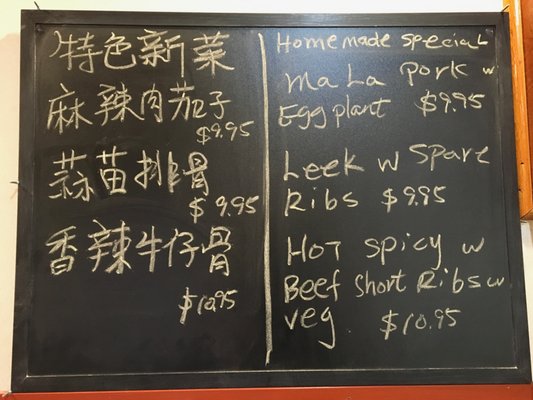 特色新菜
麻辣肉茄子
$9.95
蒜苗排骨
$9.95
香辣牛仔骨
$10.95
Homemade special
Ma La Pork w
Eggplant $9.95
Leek w Spare
Ribs $9.95
Hot spicy w
Beef short Ribs w
veg. $10.95